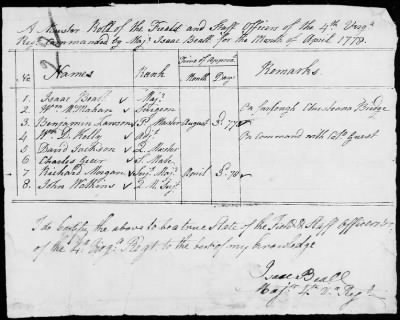 A Muster Roll of the Field and Staff Officers of the 4th Virga
Regt Commanded by Majr Isaac Beall for the Month of April 1778
No Names Rank Time of Month Day Remarks
1 Isaac Beall Majr
2 Wm McMahan Surgeon On furlough
3 Benjamin Lawson P. Master August 3. 77 Bridge
4 Wm D. Kelly Adjt On Command with Colo
5 David Jackson Q. Master
6 Charles Geer S. Mate
7 Richard Morgan Serjt Majr April 3. 78
8 John Watkins Q. M. Serjt
I do Certify the above to be a true State of the Field & Staff Officers
of the 4th Virga Regt to the best of my knowledge
Isaac Beall
Majr 4th Va Regt